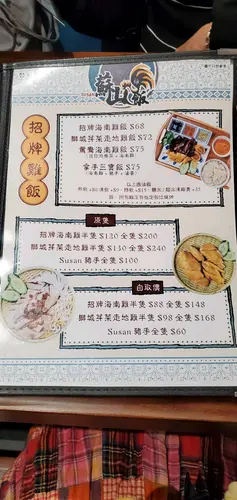 Susan 蘇山飯
招牌雞飯
招牌海南雞飯 $68
獅城芽菜走地雞飯 $72
鴛鴦海南雞飯 $75
拿手三寶飯 $75
原隻
招牌海南雞半隻 $120 全隻 $200
獅城芽菜走地雞半隻 $130 全隻 $240
Susan 豬手全隻 $100
自取價
招牌海南雞半隻 $88 全隻 $148
獅城芽菜走地雞半隻 $98 全隻 $168
Susan 豬手全隻 $60